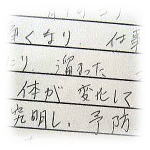 くなり、仕事
り 溜った
体が 変化して
発明し、予防